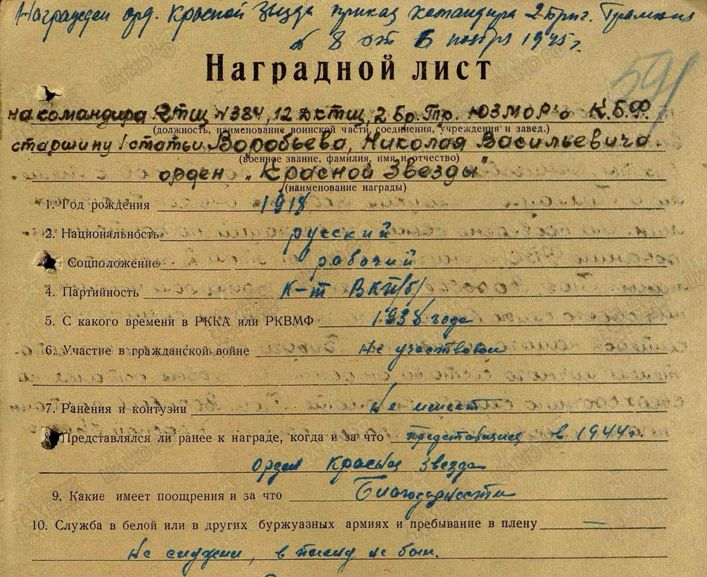 Награжден орд. Красной Звезда приказ командира 2 Бриг. Траления
№ 8 от 6 ноября 1945 г.
591
Наградной лист
на командира КТЩ №384, 12 ДКТЩ, 2 Бр.Тр. ЮЗМОР'а К.Б.Ф.
(должность, наименование воинской части, соединения, учреждения и завед.)
старшину 1 статьи Воробьева, Николая Васильевича
(военное звание, фамилия, имя и отчество)
орден „Красной Звезды"
(наименование награды)
1. Год рождения 1918
2. Национальность русский
Соцположение рабочий
4. Партийность К-т ВКП/б/
5. С какого времени в РККА или РКВМФ 1938 года
6. Участие в гражданской войне Не участвовал
7. Ранения и контузии Не имеет
8. Представлялся ли ранее к награде, когда и за что представлялся в 1944г.
орден Красная Звезда
9. Какие имеет поощрения и за что Благодарности
10. Служба в белой или в других буржуазных армиях и пребывание в плену —
Не служил, в плену не был.